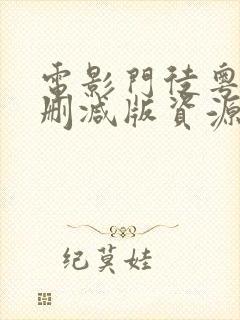 電影門徒粵
刪減版資源
纪莫娃